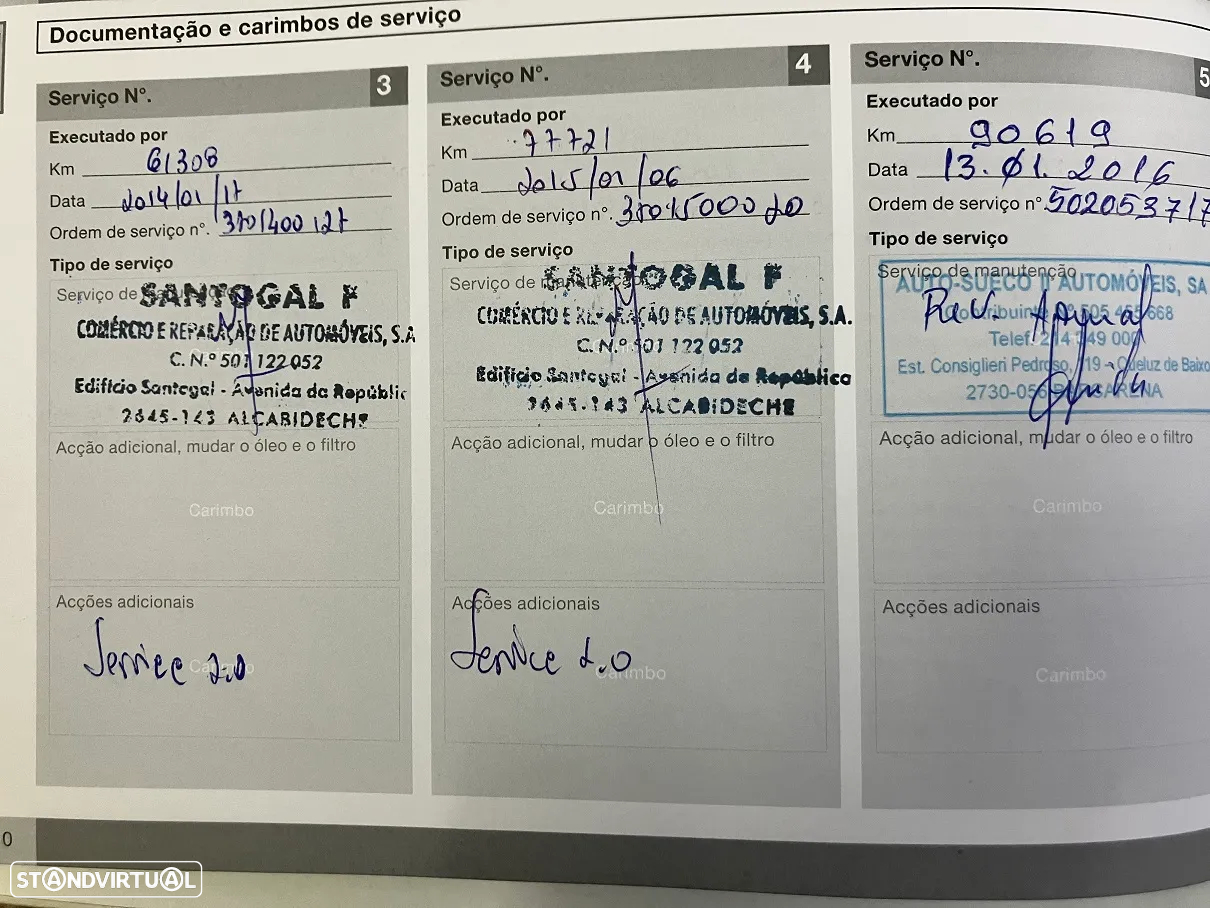 Documentação e carimbos de serviço
Serviço Nº. 3
Executado por
Km 61308
Data 2014/01/17
Ordem de serviço nº.
Tipo de serviço
Serviço de
SANTOGAL F
COMÉRCIO E REPARAÇÃO DE AUTOMÓVEIS, S.A
C. N.º 501 122 052
Edifício Santogal - Avenida da Repúblic
2645-143 ALCABIDECHE
Acção adicional, mudar o óleo e o filtro
Carimbo
Acções adicionais
Service 2.0
Carimbo
Serviço Nº. 4
Executado por
Km 77721
Data 2015/01/06
Ordem de serviço nº.
Tipo de serviço
Serviço de manutenção
SANTOGAL F
COMÉRCIO E REPARAÇÃO DE AUTOMÓVEIS, S.A.
C. N.º 501 122 052
Edifício Santogal - Avenida da República
2645-143 ALCABIDECHE
Acção adicional, mudar o óleo e o filtro
Carimbo
Acções adicionais
Service 2.0
Carimbo
Serviço Nº. 5
Executado por
Km 90619
Data 13.01.2016
Ordem de serviço nº. 502053717
Tipo de serviço
Serviço de manutenção
AUTO-SUECO II AUTOMÓVEIS, SA
Contribuinte 505 455 668
Rev. Anual
Telef. 214 349 000
Est. Consiglieri Pedroso, 19 - Queluz de Baixo
2730-056 BARCARENA
Acção adicional, mudar o óleo e o filtro
Carimbo
Acções adicionais
Carimbo
0
STANDVIRTUAL